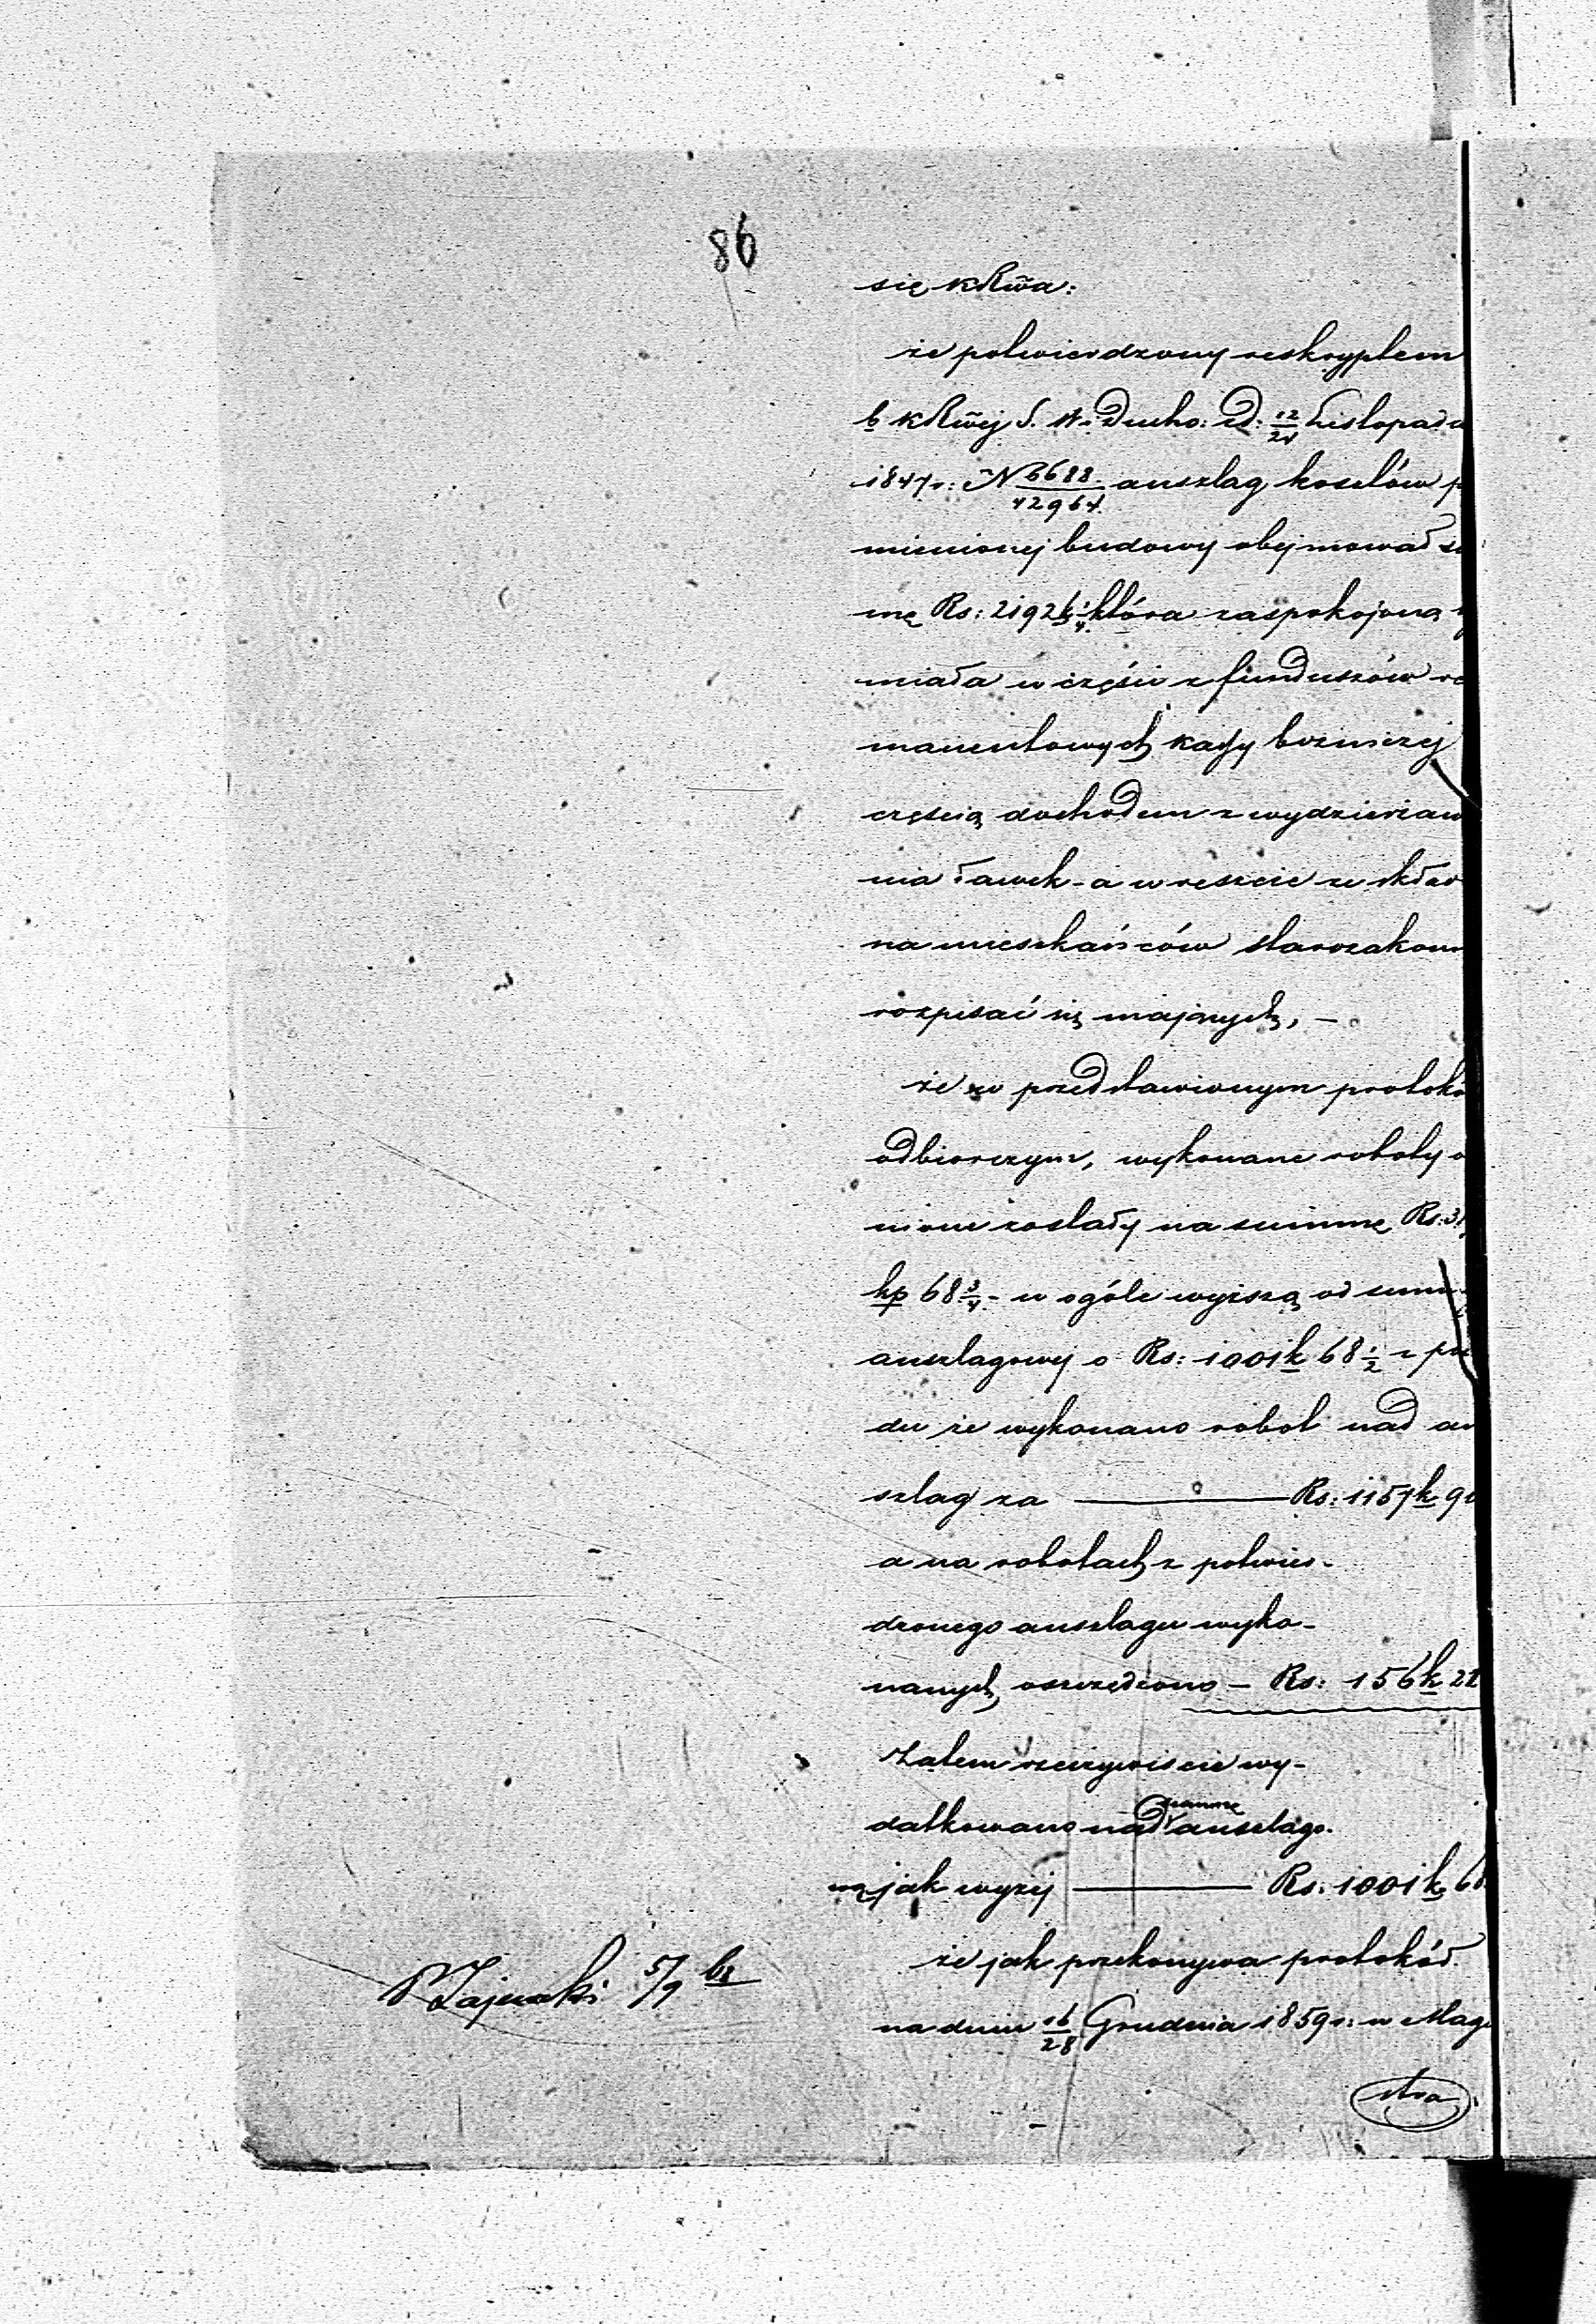 86
się KRz̃wa:
że potwierdzony reskryptem
b. KRz̃wej S. W. iDucho: d: 12/24 Listopada
1847 r: N 6688/42964 anszlag kosztów p
mienionej budowy obejmował su
mę Rs: 2192 k 1/4 która zaspokojoną b
miała w części z funduszów re
manentowych kassy bozniczej
częścią dochodem z wydzierżaw
nia ławek - a wreszcie ze skład
na mieszkańców starozakonn
rozpisać się mających, —
że w przedstawionym protokó
odbiorczym, wykonane roboty o
nione zostały na summę Rs: 31
kp 68 3/4 - w ogóle wyższą od summ
anszlagowej o Rs: 1001 k 68 1/2 z po
du że wykonano robot nad an
szlag za — Rs: 1157 k 90
a na robotach z potwier-
dzonego anszlagu wyko-
nanych oszczędzono — Rs: 156 k 22
Zatem rzeczywiście wy-
datkowano nad summę anszlago.
wą jak wyżej — Rs: 1001 k 68
że jak przekonywa protokół
na dniu 16/28 Grudnia 1859 r: w Magi
stra
Zajewski 5/9 br